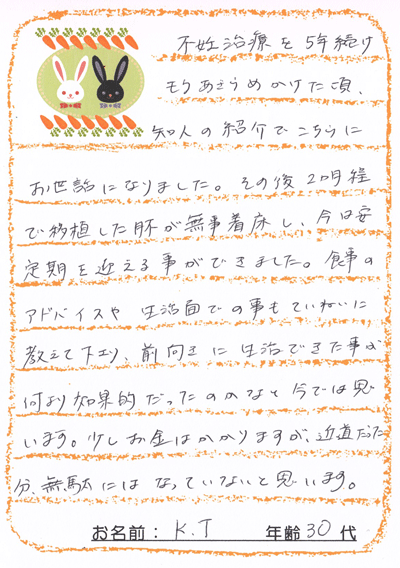 不妊治療を5年続け
もうあきらめかけた頃、
知人の紹介でこちらに
お世話になりました。その後2ヶ月経
で移植した胚が無事着床し、今は安
定期を迎える事ができました。食事の
アドバイスや生活面での事もていねいに
教えて下さり、前向きに生活できた事が
何より効果的だったのかなと今では思
います。少しお金はかかりますが、近道だった
分、無駄にはなっていないと思います。
お名前： K.T 年齢 30 代